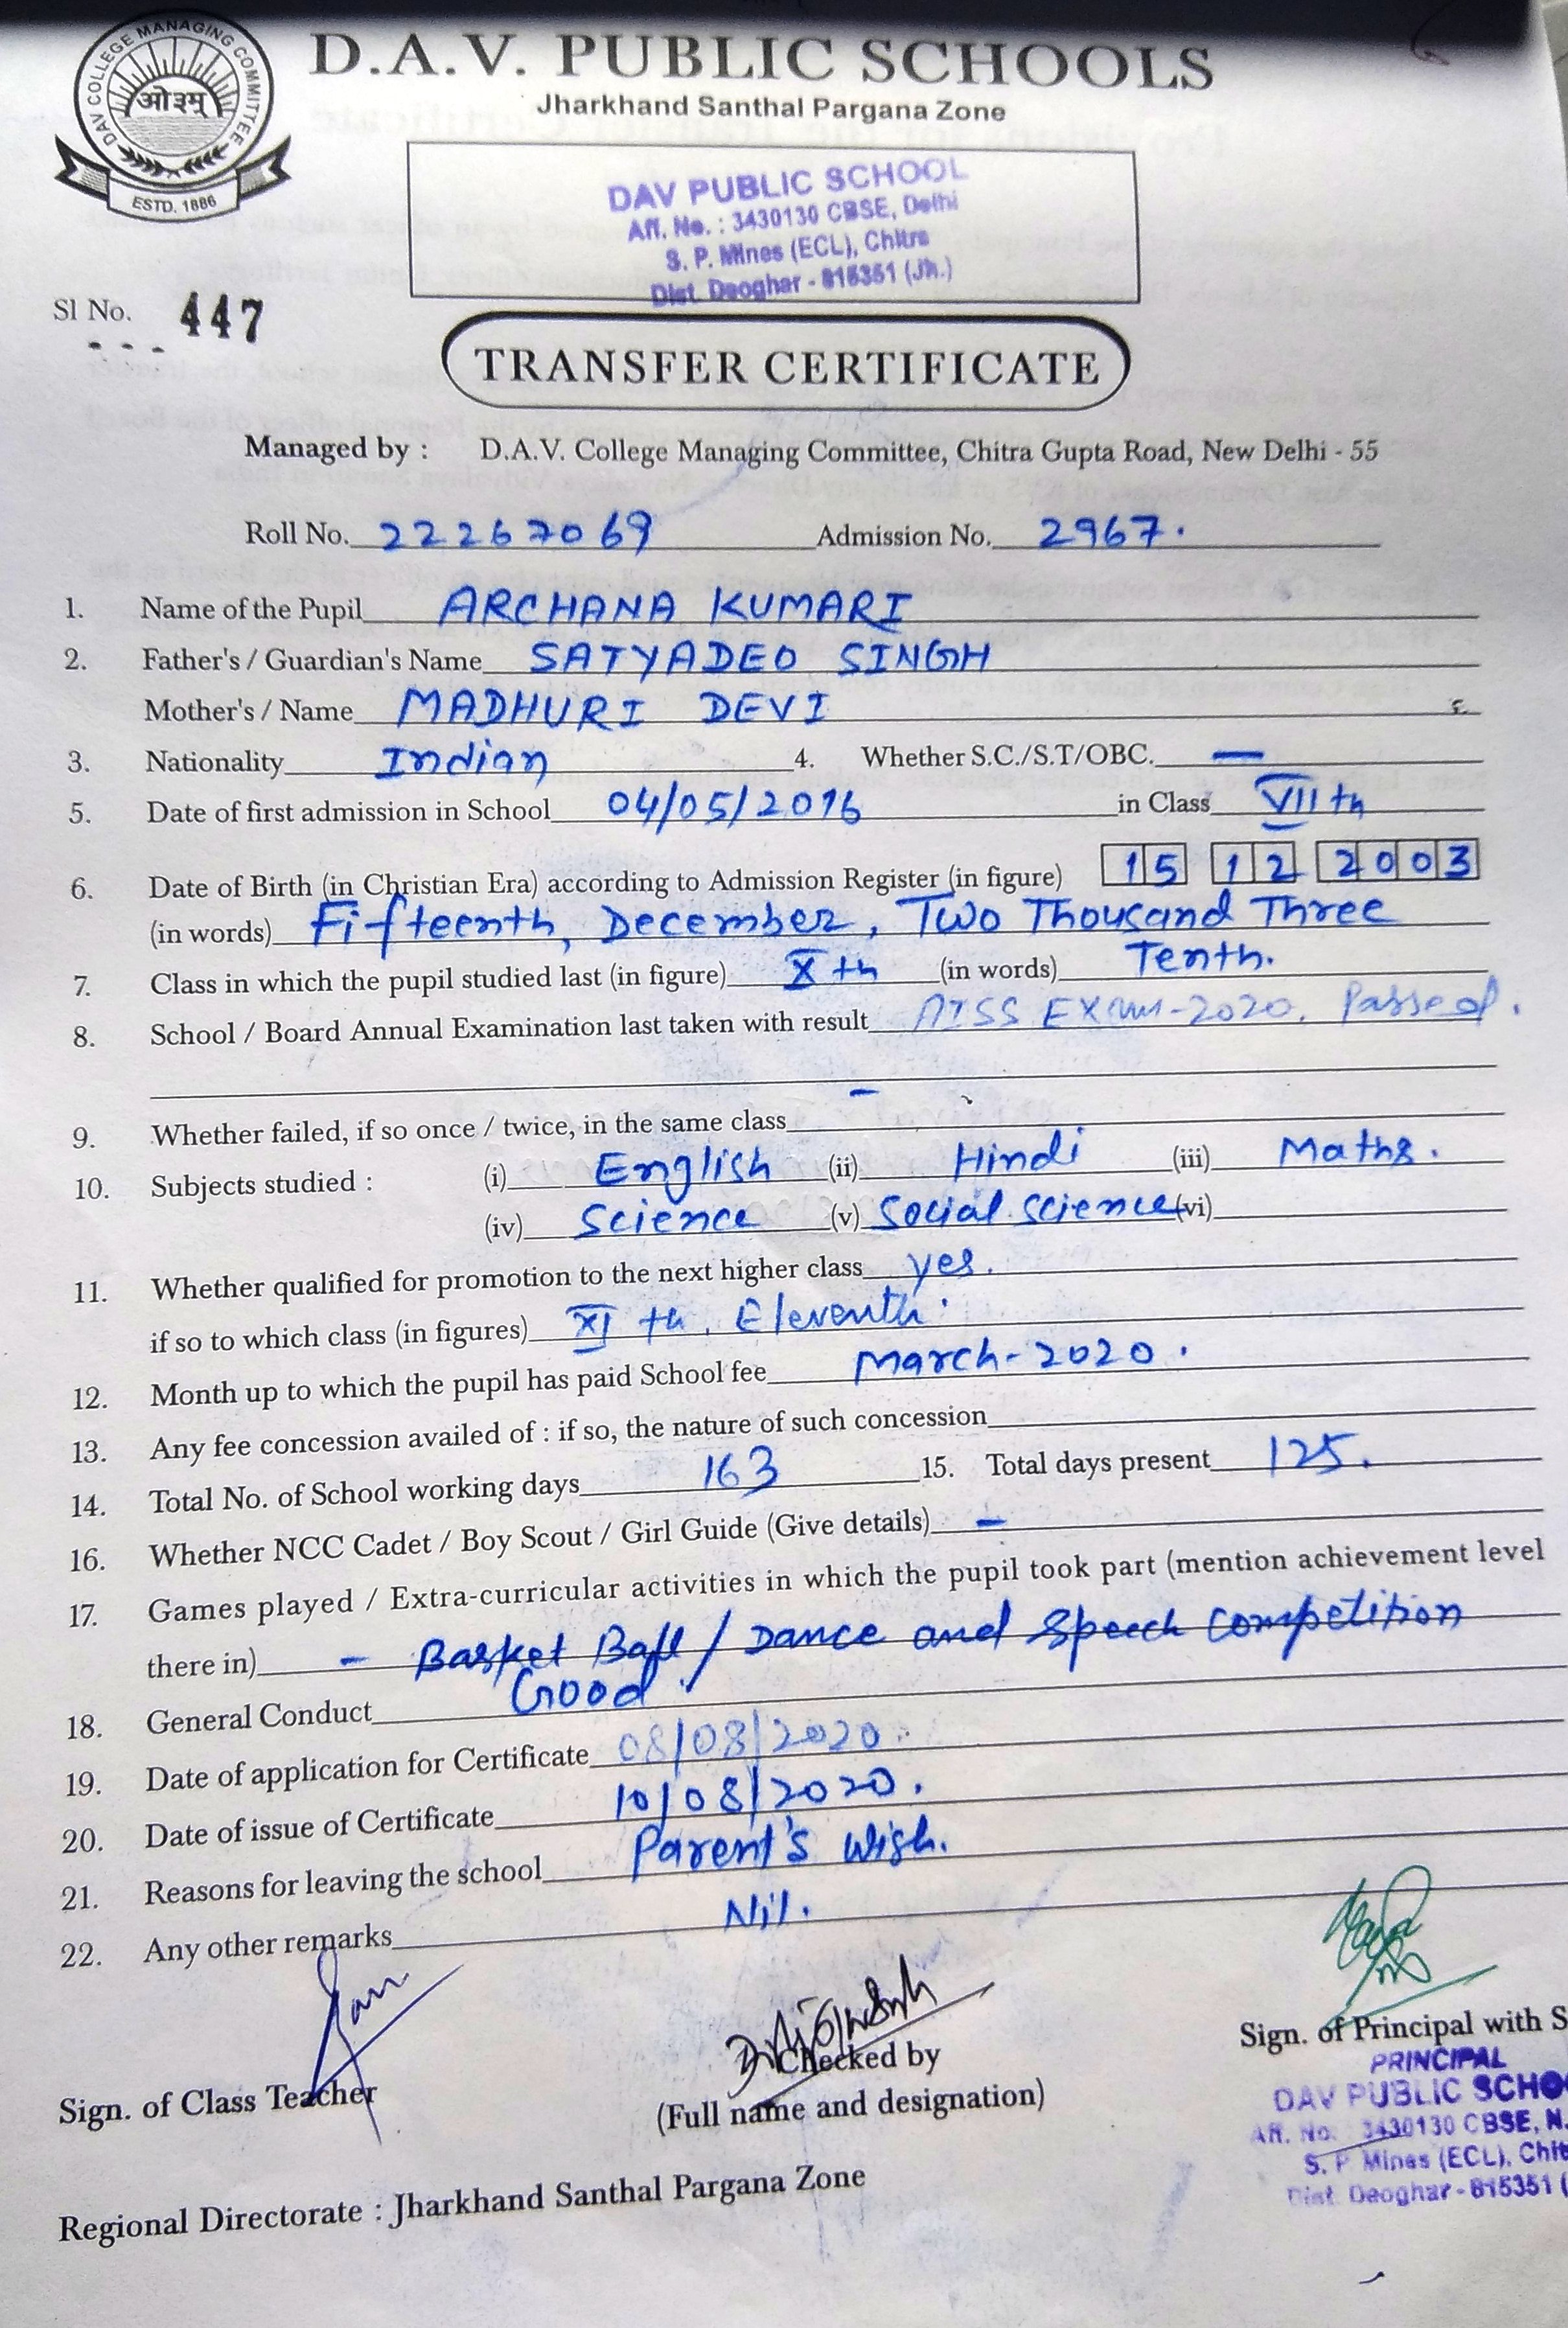 DAV COLLEGE MANAGING COMMITTEE
ओ३म्
ESTD. 1886
D.A.V. PUBLIC SCHOOLS
Jharkhand Santhal Pargana Zone
DAV PUBLIC SCHOOL
Aff. No. : 3430130 CBSE, Delhi
S. P. Mines (ECL), Chitra
Dist. Deoghar - 815351 (Jh.)
Sl No. 447
TRANSFER CERTIFICATE
Managed by : D.A.V. College Managing Committee, Chitra Gupta Road, New Delhi - 55
Roll No. 22267069 Admission No. 2967.
1. Name of the Pupil ARCHANA KUMARI
2. Father's / Guardian's Name SATYADEO SINGH
Mother's / Name MADHURI DEVI
3. Nationality Indian 4. Whether S.C./S.T/OBC. —
5. Date of first admission in School 04/05/2016 in Class VII th
6. Date of Birth (in Christian Era) according to Admission Register (in figure) 15 12 2003
(in words) Fifteenth, December, Two Thousand Three
7. Class in which the pupil studied last (in figure) X th (in words) Tenth.
8. School / Board Annual Examination last taken with result AISS EXam-2020. Passed.
9. Whether failed, if so once / twice, in the same class —
10. Subjects studied : (i) English (ii) Hindi (iii) Maths.
(iv) Science (v) Social Science (vi)
11. Whether qualified for promotion to the next higher class yes.
if so to which class (in figures) XI th, Eleventh.
12. Month up to which the pupil has paid School fee March-2020.
13. Any fee concession availed of : if so, the nature of such concession
14. Total No. of School working days 163 15. Total days present 125.
16. Whether NCC Cadet / Boy Scout / Girl Guide (Give details) —
17. Games played / Extra-curricular activities in which the pupil took part (mention achievement level
there in) — Basket Ball / Dance and Speech Competition
18. General Conduct Good.
19. Date of application for Certificate 08/08/2020.
20. Date of issue of Certificate 10/08/2020.
21. Reasons for leaving the school Parent's Wish.
22. Any other remarks Nil.
Sign. of Class Teacher
Checked by
(Full name and designation)
Sign. of Principal with S
PRINCIPAL
DAV PUBLIC SCHOO
Aff. No. 3430130 CBSE, N.
S. P. Mines (ECL), Chit
Dist. Deoghar - 815351 (
Regional Directorate : Jharkhand Santhal Pargana Zone